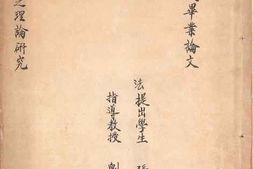 畢業論文
之理論研究
法提出學生 張
指導教授